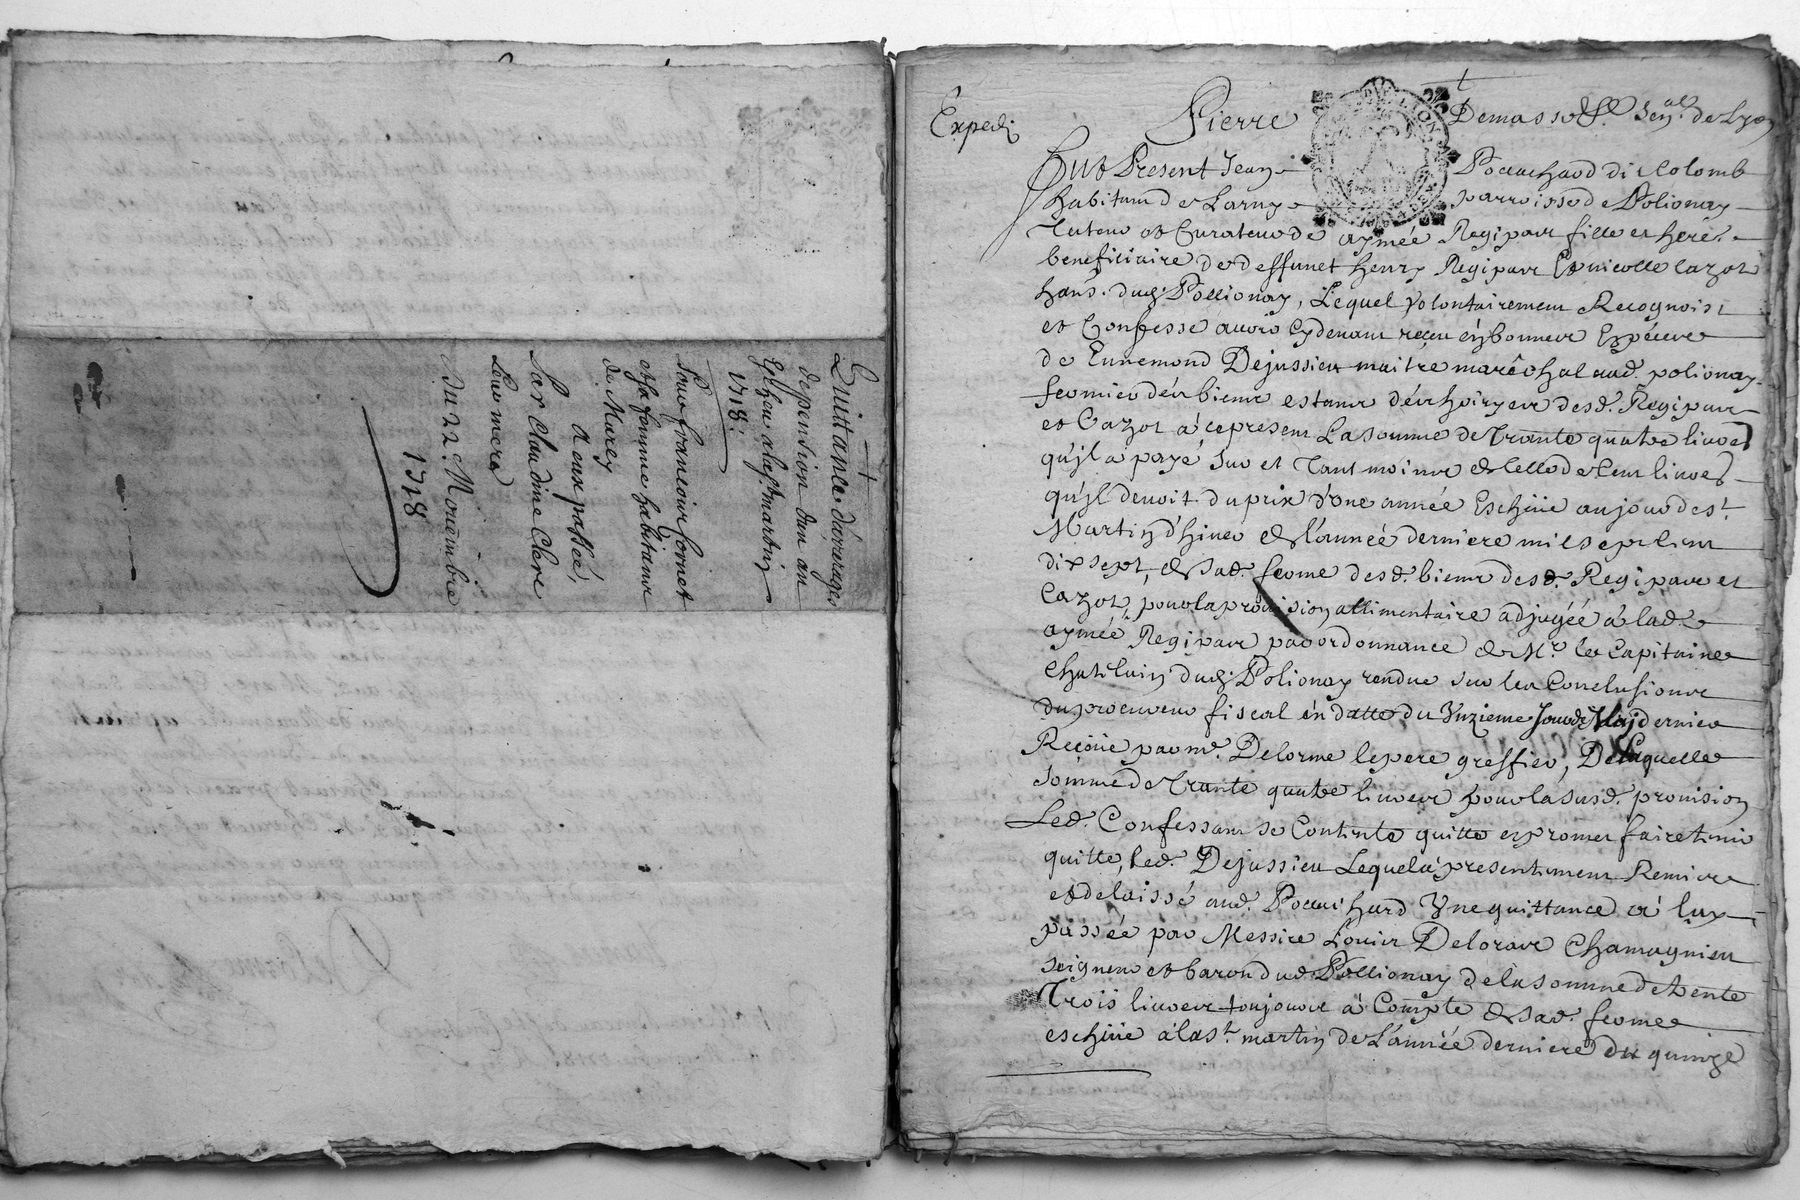 Quittance d'arrerages
de pension d'un an
Escheu a la st martin
1718.
Pour francois fornet
et sa femme habitans
de Marcy
A eux passée,
Par Claudine Clere
Leur mere
Du 22. Nouembre
1718
Expedi.
Pierre Demasso Sen.al de Lyon
Fut Present Jean Pocachard di Colomb
habitant de Larny parroisse de Polionay
Tuteur et Curateur de aymée Regipaur fille et here.
beneficiaire de deffunct henry Regipaur Et nicolle Cazot
hans. dud. Pollionay, Lequel Volontairement Recognoist
et Confesse auoir Cydeuant reçeu en bonnes Especes
de Ennemond Dejussieu maitre maréchal aud. polionay
fermier des biens estans des hoiryes desd. Regipaur
et Cazot a ce present La somme de Trante quatre liures
qu'il a payé sur et Tant moins de Celle de Cent liures
qu'il deuoit du prix d'une année Escheüe au jour de st
Martin d'hiuer de l'année derniere mil sept Cent
dix sept, de sad. ferme desd. biens desd. Regipaur et
Cazot, pour la prouision allimentaire adjugée a lad.
aymée Regipaur par ordonnance de Mr. le Capitaine
Chatelain dud. Polionay rendue sur les Conclusions
du procureur fiscal en datte du Unzieme Jour de May dernier
Reçeüe par me. Delorme le pere greffier, De laquelle
somme de Trante quatre liures pour la susd. prouision
Led. Confessant se Contente quitte et promet faire tenir
quitte, led. Dejussieu Lequel a presentement Remis
et delaissé aud. Pocachard Une quittance a luy
passée par Messire Louis Deloras Chamagnieu
seigneur et baron dud. Pollionay de la somme de Trente
Trois liures toujours a Compte de sad. ferme
escheüe a la st. martin de L'année derniere du quinze